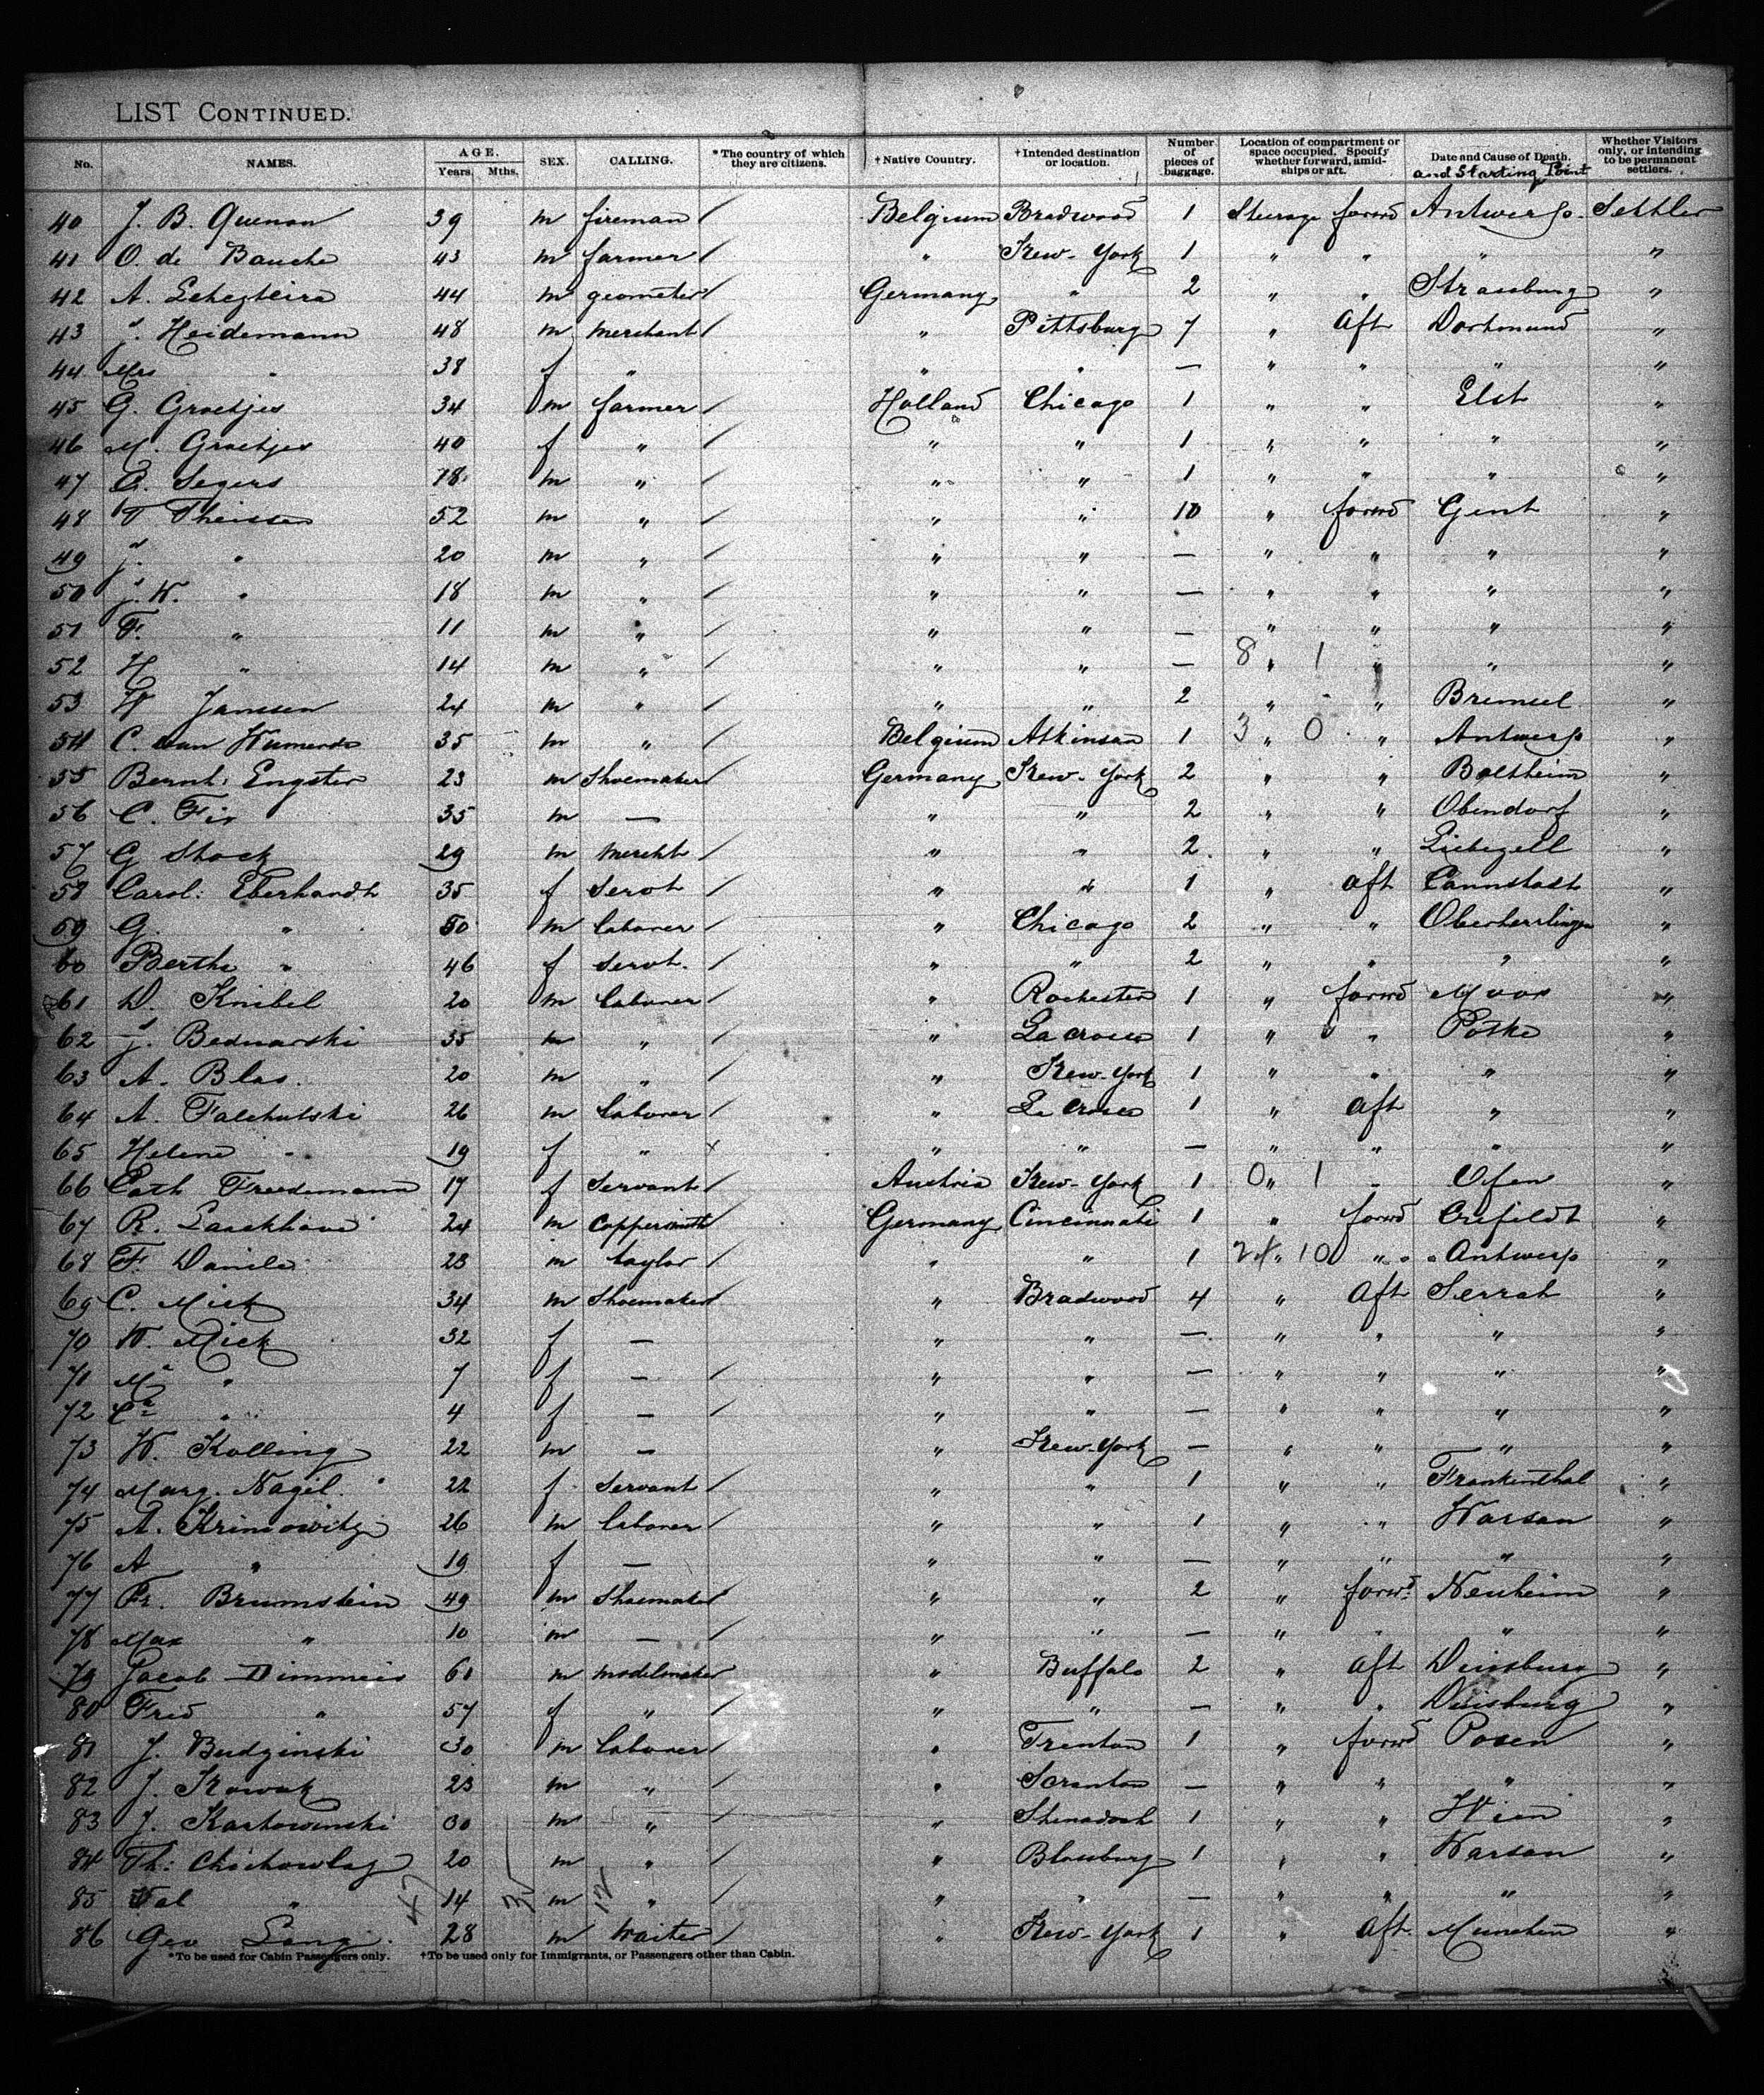 LIST CONTINUED.
No. NAMES. AGE. Years. Mths. SEX. CALLING. *The country of which they are citizens. †Native Country. †Intended destination or location. Number of pieces of baggage. Location of compartment or space occupied. Specify whether forward, amidships or aft. Date and Cause of Death. and Starting Point Whether Visitors only, or intending to be permanent settlers.
40 J. B. Quenon 39 m fireman / Belgium Bradwood 1 Steerage forwd Antwerp. Settler
41 O. de Bauche 43 m farmer / " New-York 1 " " " "
42 A. 44 m geometer / Germany " 2 " " Strassburg "
43 J. Heidemann 48 m merchant / " Pittsburg 7 " Aft Dortmund "
44 Mrs " 38 f " " " — " " " "
45 G. Groetjes 34 m farmer / Holland Chicago 1 " " Elst "
46 M. Groetjes 40 f " / " " 1 " " " "
47 C. Segers 18 m " / " " 1 " " " "
48 T Theissen 52 m " / " " 10 " forwd Gent "
49 J. " 20 m " / " " — " " " "
50 J. W. " 18 m " / " " — " " " "
51 F. " 11 m " / " " — " " " "
52 H " 14 m " / " " — 8 " 1 " " "
53 W Janssen 24 m " / " " 2 " " "
54 C. van 35 m " / Belgium Atkinson 1 3 " 0 " Antwerp "
55 Bernh: Engster 23 m Shoemaker / Germany New-York 2 " " Boltheim "
56 C. Fix 35 m — " " 2 " " Obendorf "
57 G Stock 29 m mercht / " " 2 " " Liebezell "
58 Carol: Eberhardt 35 f Servt / " " 1 " aft Cannstatt "
59 G. " 50 m laborer / " Chicago 2 " " Oberherrlingen "
60 Berthe " 46 f servt. / " " 2 " " " "
61 D. Knibel 20 m laborer / " Rochester 1 " forwd Moor "
62 J. Bednarski 35 m " / " La crosse 1 " " Potke "
63 A. Blas. 20 m " / " New-York 1 " " " "
64 A. Falchutski 26 m laborer / " La crosse 1 " aft " "
65 Helene " 19 f " " " — " " " "
66 Cath Freedemann 17 f Servant / Austria New-York 1 0 " 1 Ofen "
67 R. 24 m Coppersmith / Germany Cincinnati 1 " forwd Crefeldt "
68 F. Daniels 23 m taylor / " " 1 24 " 10 " Antwerp "
69 C. Mick 34 m Shoemaker " Bradwood 4 " Aft Serrat "
70 W. Mick 32 f — " " — " " " "
71 Ma " 7 f — / " " — " " " "
72 Ca " 4 f — / " " — " " " "
73 W. Kolling 22 m — " New-York — " " " "
74 Marg. Nagil. 22 f Servant / " " 1 " " Frankenthal "
75 A. Krimowitz 26 m laborer / " " 1 " " Warsan "
76 A " 19 f — " " — " " " "
77 Fr. Brumstein 49 m Shoemaker " " 2 " forwd Neuheim "
78 Max " 10 m — / " " — " " " "
79 Jacob Dimmeis 61 m modelmaker " Buffalo 2 " Aft Duisburg "
80 Fred " 57 f " / " " — " " Duisburg "
81 J. Budzinski 30 m laborer / " Trenton 1 " forwd Posen "
82 J. Nowak 23 m " / " Scranton — " " " "
83 J. Kartowinski 30 m " / " Shenadoah 1 " " Wien "
84 Th: Chichowlaz 20 m " / " Blossburg 1 " " Warsan "
85 Val " 14 m " / " " — " " " "
86 Geo Lang. 28 m Waiter / " New-York 1 " aft. Munchen "
47 12
*To be used for Cabin Passengers only. †To be used only for Immigrants, or Passengers other than Cabin.